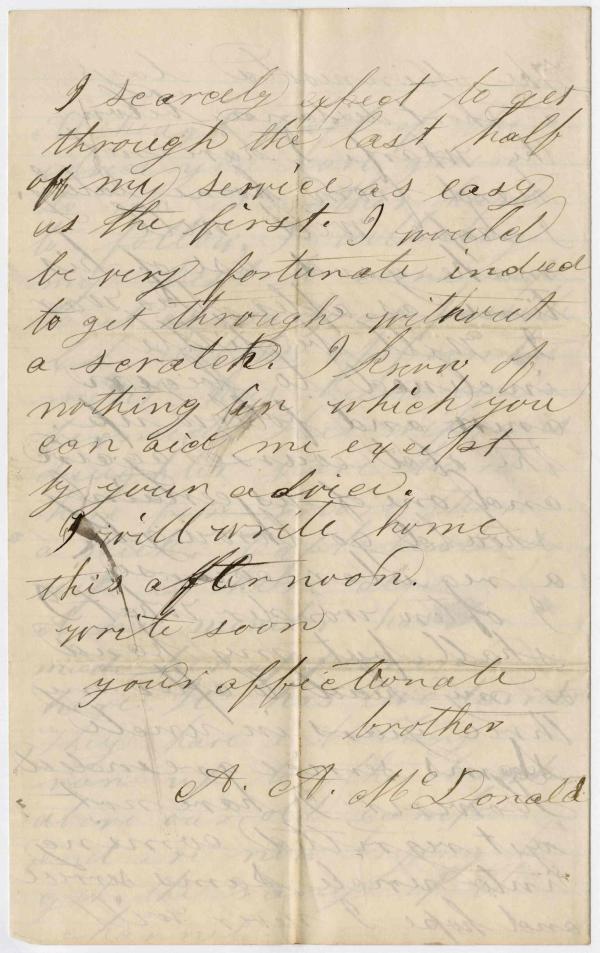 I scarcely expect to get
through the last half
off my service as easy
as the first. I would
be very fortunate indeed
to get through without
a scratch. I know of
nothing in which you
can aid me except
by your advice.
I will write home
this afternoon.
write soon
your affectionate
brother
A. A. McDonald